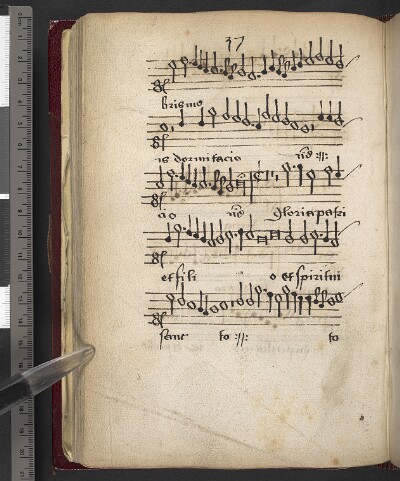 37
brismo
is dormitacio nẽ :||:
cio nẽ Gloria patri
et fili o et spiritui
sanc to :||: to